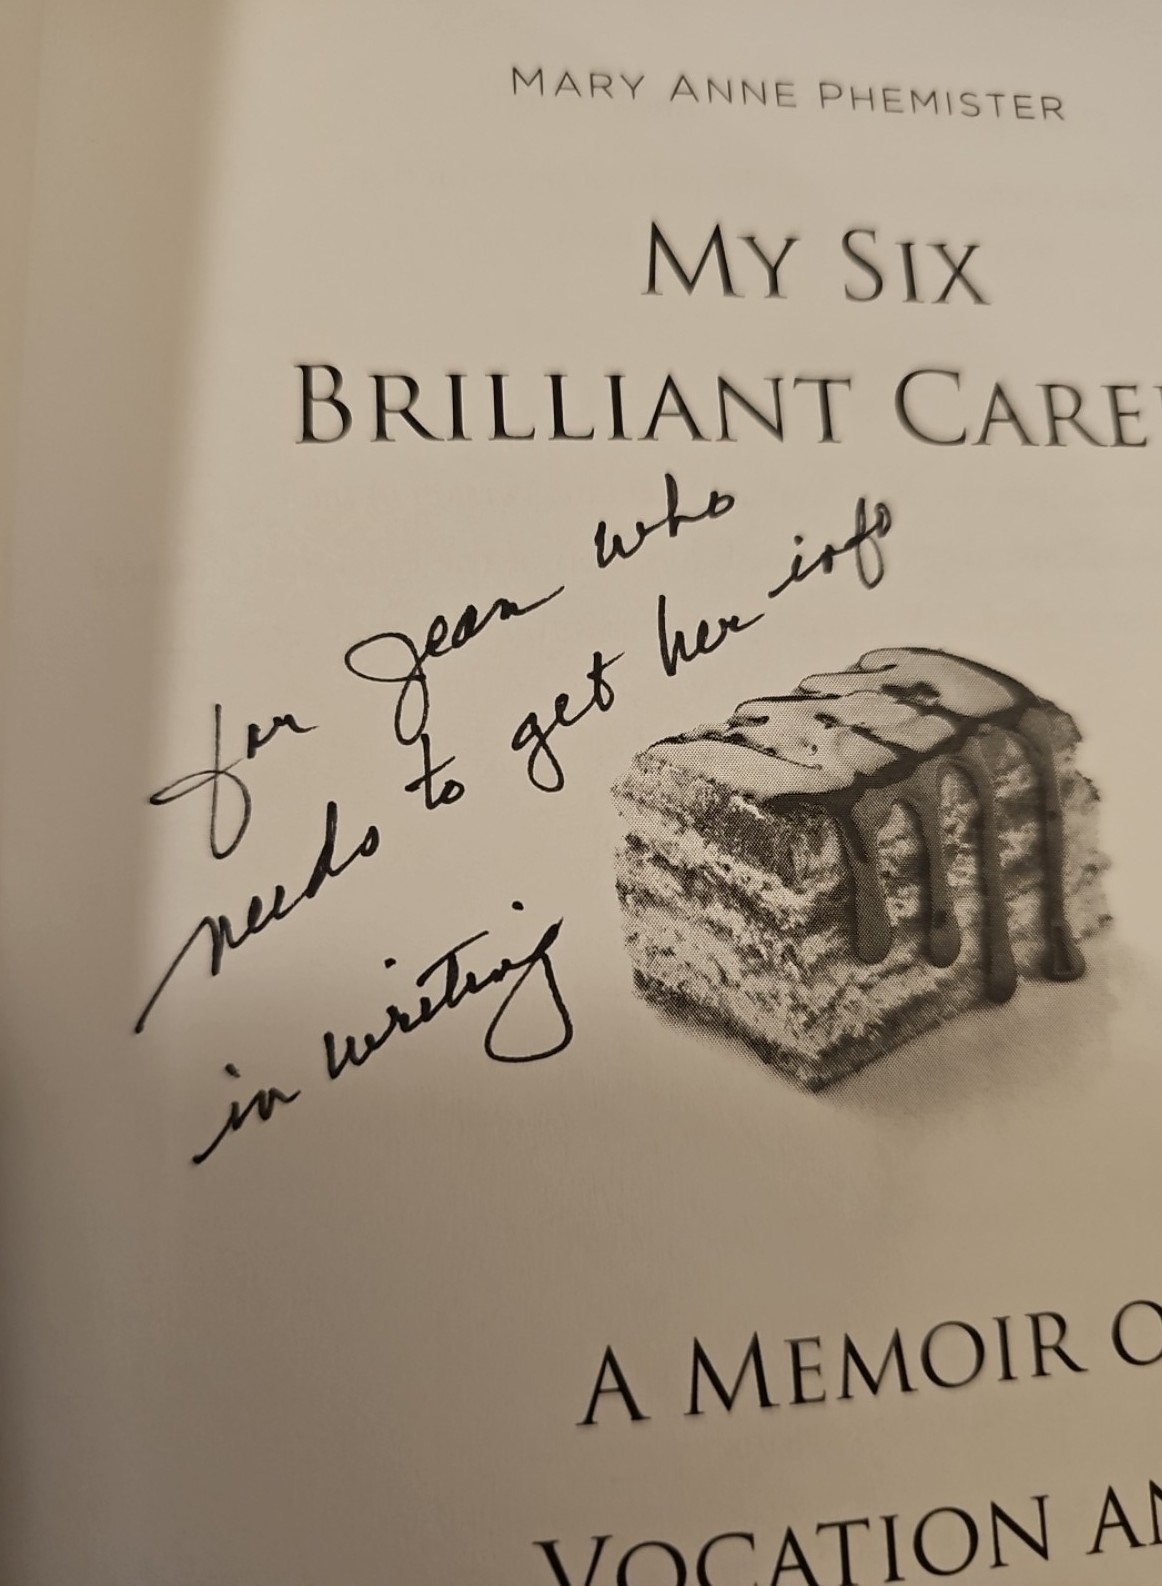 MARY ANNE PHEMISTER
MY SIX
BRILLIANT CARE
for Jean who
needs to get her info
in writing
A MEMOIR O
VOCATION AN